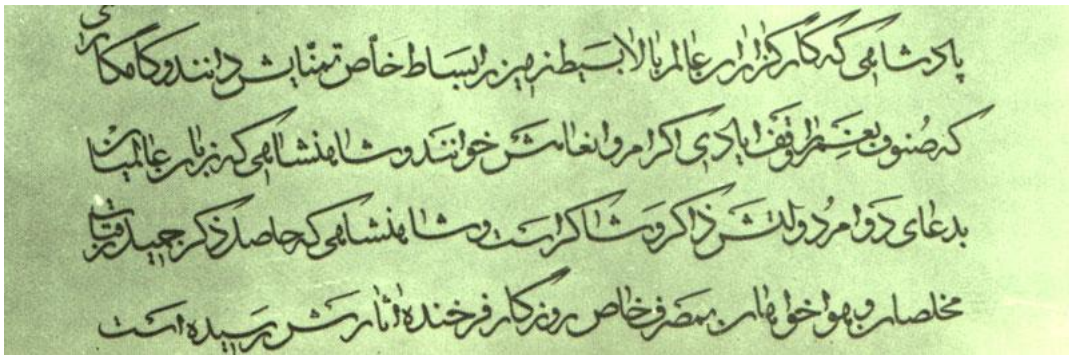 پادشاهی که کارگزاران عالم بالا بسیط زمین را بساط خاص تمنایش دانند و کامکاری
که صنوف نعم را وقف ایادی اکرام و انعامش خوانند و شاهنشاهی که زبان عالمیان
بدعای دوام دولتش ذاکر و شاکر است و شاهنشاهی که حاصل ذکر جمیل
مخلصان و هواخواهان بمصرف خاص روزگار فرخنده آثارش رسیده است